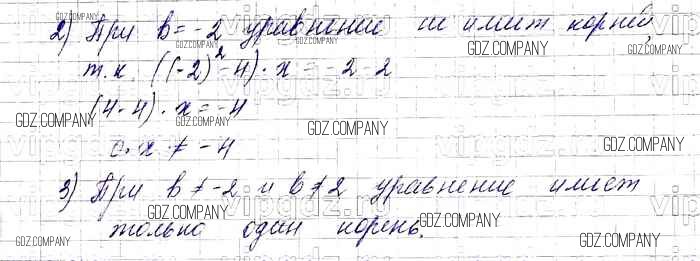 2) При b = -2 уравнение не имеет корней,
т.к. ((-2)² - 4) · x = -2 - 2
(4 - 4) · x = -4
0 · x ≠ -4
3) При b ≠ -2 и b ≠ 2 уравнение имеет
только один корень.
GDZ.COMPANY
GDZ.COMPANY
GDZ.COMPANY
GDZ.COMPANY
GDZ.COMPANY
GDZ.COMPANY
GDZ.COMPANY
GDZ.COMPANY
GDZ.COMPANY
GDZ.COMPANY
GDZ.COMPANY